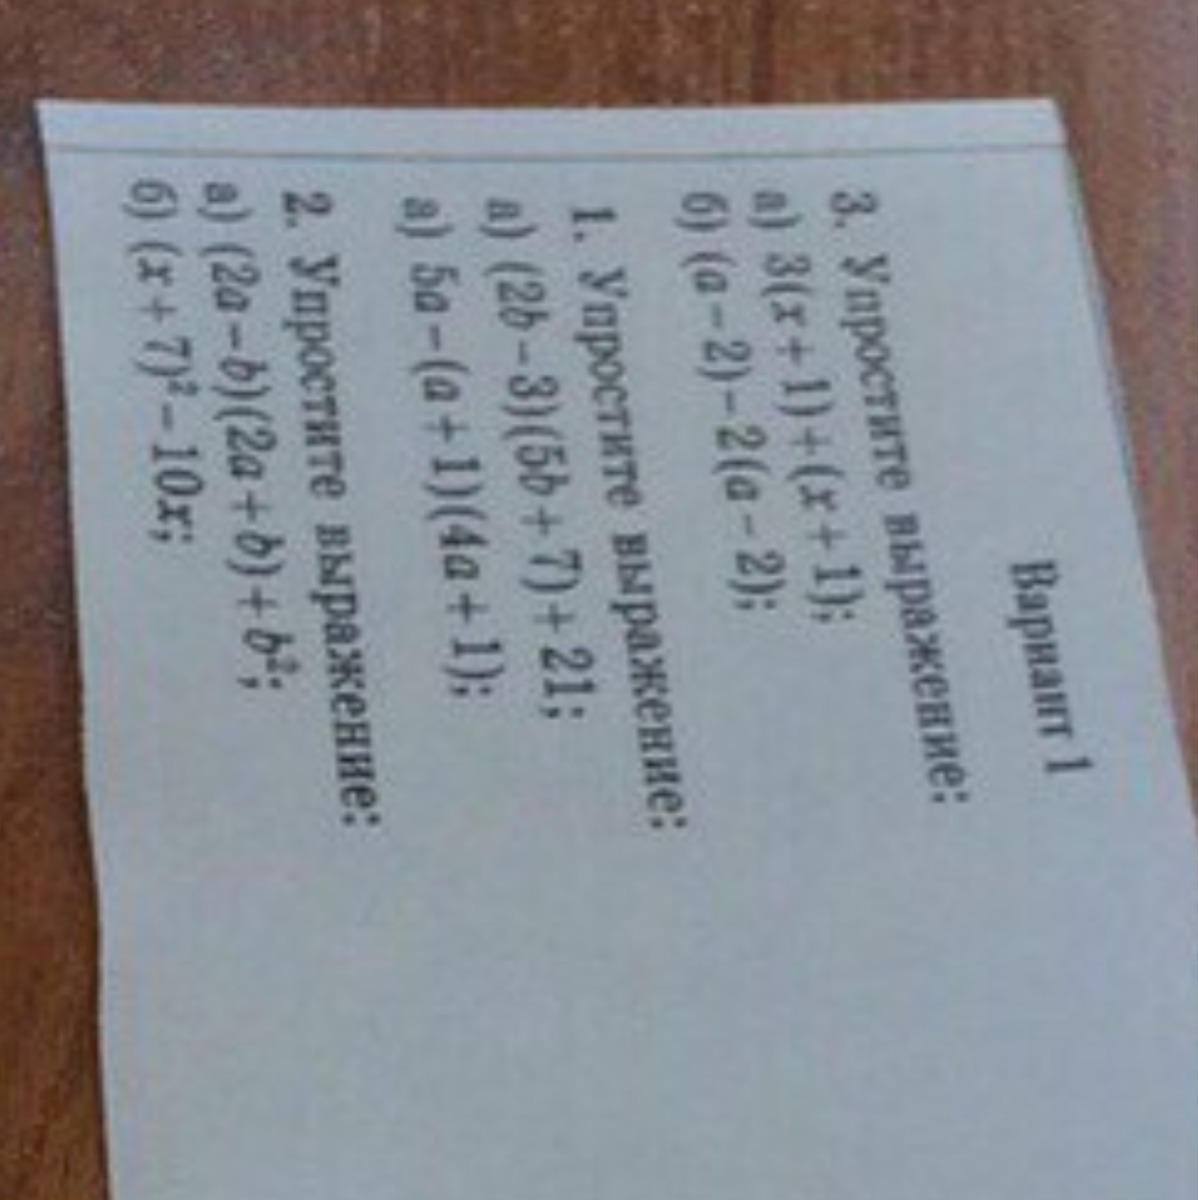 Вариант 1
3. Упростите выражение:
а) 3(x + 1) + (x + 1);
б) (a − 2) − 2(a − 2);
1. Упростите выражение:
а) (2b − 3)(5b + 7) + 21;
а) 5a − (a + 1)(4a + 1);
2. Упростите выражение:
а) (2a − b)(2a + b) + b²;
б) (x + 7)² − 10x;